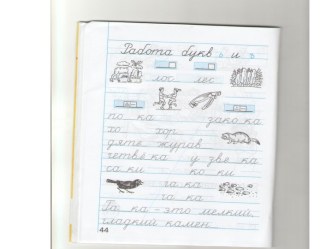 Работа букв ь и ъ
лос лес
по ка зако ка
хо хор
дяте журав
четвё ка у две ка
са ки ко ки
га ка
га ка
Га ка – это мелкий,
гладкий камен
44